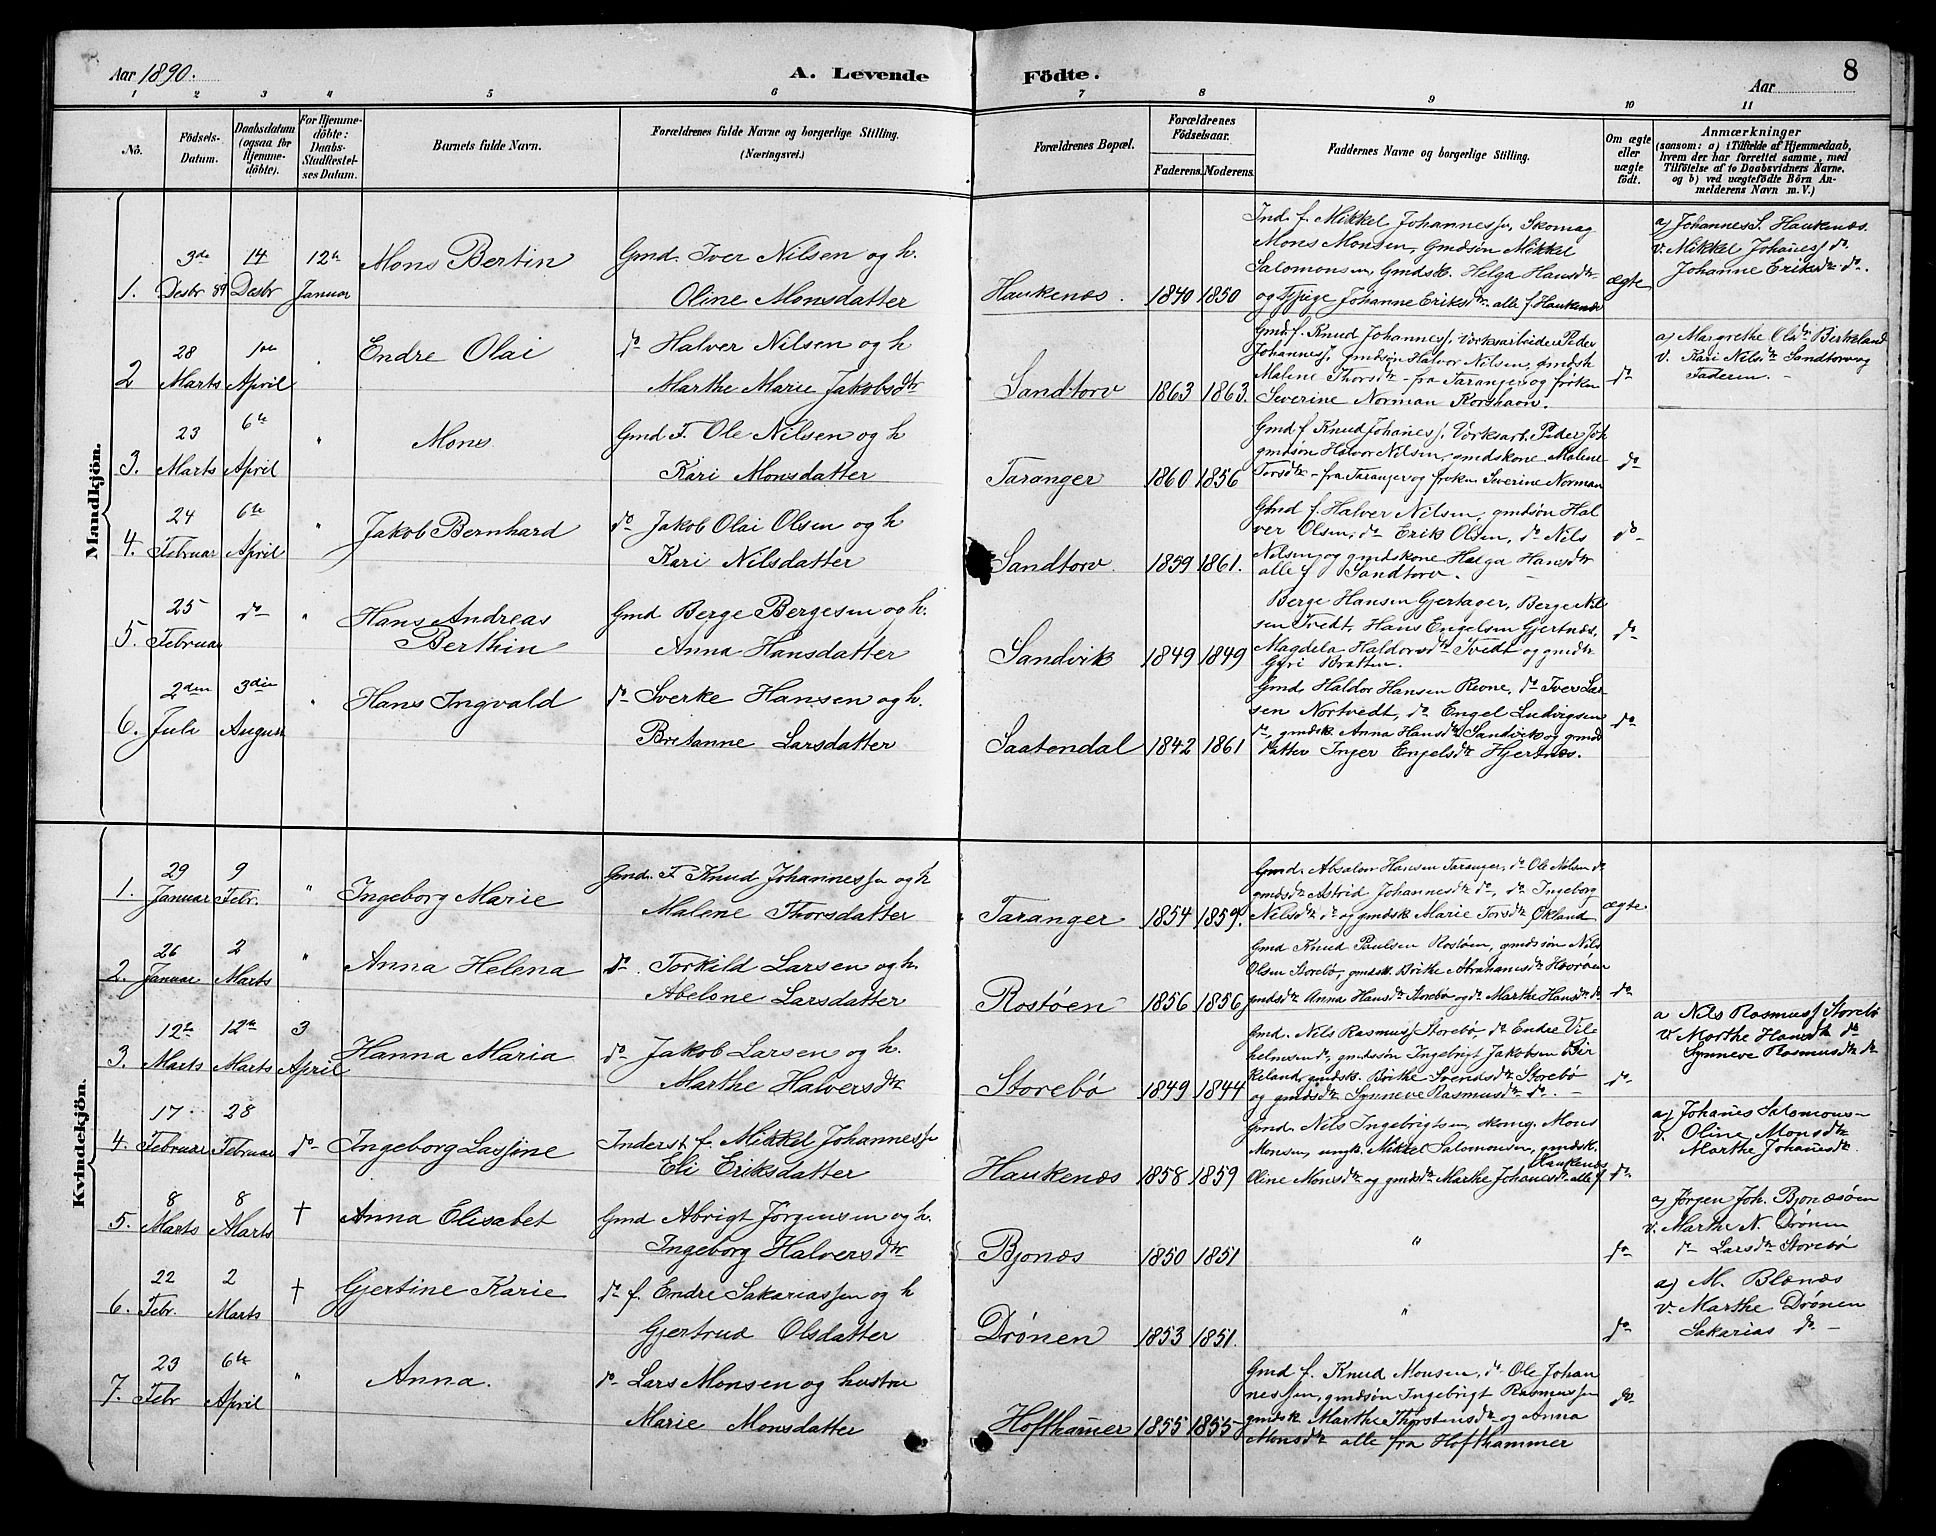 Aar 1890.
A. Levende Födte.
Aar
8
1 2 3 4 5 6 7 8 9 10 11
No.
Födsels-Datum.
Daabsdatum (ogsaa for Hjemmedöbte).
For Hjemmedöbte: Daabs-Stadfæstelses Datum.
Barnets fulde Navn.
Forældrenes fulde Navne og borgerlige Stilling. (Næringsvei.)
Forældrenes Bopæl.
Forældrenes Födselsaar.
Faderens. Moderens.
Faddernes Navne og borgerlige Stilling.
Om ægte eller uægte födt.
Anmærkninger
(saasom: a) i Tilfælde af Hjemmedaab, hvem der har forrettet samme, med Tilföielse af to Daabsvidners Navne. og b) ved uægtefödte Börn Anmelderens Navn m. V.)
Mandkjön.
1. 3de Desbr 89 14 Desbr 12te Januar
Mons Bertin
Gmd. Iver Nilsen og h.
Oline Monsdatter
Haukenæs. 1840 1850
Ind. f. Mikkel Johannessen, Skomag
Mons Monsen, Gmdsøn Mikkel
Salomonsen, Gmdsk. Helga Hansdtr
og Pige Johanne Eriksdtr. alle f. Haukenæs
ægte
a) Johannes S. Haukenæs.
v. Mikkel Johanes/ do
Johanne Eriksdtr do.
2 28 Marts 1ste April "
Endre Olai
do Halver Nilsen og h
Marthe Marie Jakobsdtr
Sandtorv 1863 1863.
Gmd. f. Knud Johannes/, Værksarbeider Peder
Johannes/, gmdsøn Halvor Nilsen, gmdsk
Malene Thorsdtr - fra Taranger og frøken
Severine Norman Korshavn.
do
a) Margrethe Olsdtr Birkeland
v. Kari Nilsdtr Sandtorv og
Faderen. -
3. 23 Marts 6te April "
Mons
Gmd F. Ole Nilsen og h
Kari Monsdatter
Taranger 1860 1856
Gmd f. Knud Johanes/, Værksarb. Peder Joh
gmdsøn Halvor Nilsen, gmdskone Malene
Torsdtr - fra Taranger og frøken Severine Norman
do
4. 24 Februar 6te April "
Jakob Bernhard
do Jakob Olai Olsen og h
Kari Nilsdatter
Sandtorv. 1859 1861.
Gmd f. Halver Nilsen, gmdsøn Hal
ver Olsen, do Erik Olsen, do Nils
Nilsen, og gmdskone Helga Hansdtr
alle f Sandtorv.
do
5. 25 Februar do "
Hans Andreas
Berthin
Gmd Berge Bergesen og h.
Anna Hansdatter
Sandvik 1849 1849
Berge Hansen Gjertager, Berge Nil
sen Tvedt, Hans Engelsen Gjertnæs,
Magdela Haldorsdtr Tvedt og gmdtr
Gjøri Bratten.
do
6. 2den Juli 3die August "
Hans Ingvald
do Sverke Hansen og h.
Britanne Larsdatter
Saatendal 1842 1861
Gmd. Haldor Hansen Revne, do Iver Lar
sen Nortvedt, do Engel Ludvigsen
do, gmdsk. Anna Hansdtr Sandvik og gmds
datter Inger Engelsdtr Hjertnæs.
do
Kvindekjön.
1. 29 Januar 9 Febr. "
Ingeborg Marie
Gmd. F Knud Johannessen og h
Malene Thorsdatter
Taranger 1854 1859.
Gmd. Absalon Hansen Taranger, do Ole Nilsen do
gmdsdtr Astrid Johannesdtr do, do Ingeborg
Nilsdtr do og gmdsk Marie Torsdtr Økland
ægte
2. 26 Januar 2 Marts "
Anna Helena
do. Torkild Larsen og h.
Abelone Larsdatter
Rostøen 1856 1856
Gmd Knud Paulsen Rostøen, gmdsøn Nils
Olsen Storebø, gmdsk. Brithe Abrahamsdtr Hevrøen
gmdsdtr Anna Hansdtr Storebø og do Marthe Hansdtr do
do
3. 12te Marts 12te Marts 3 April
Hanna Maria
do Jakob Larsen og h.
Marthe Halversdtr
Storebø 1849 1844
Gmd. Nils Rasmus/ Storebø, do Endre Vil
helmsen do, gmdssøn Ingebrigt Jakobsen Bir
keland, gmdsk. Brithe Svendsdtr Storebø
og gmdsdtr Synneve Rasmusdtr do.
do
a Nils Rasmus/ Storebø
v Marthe Hansdtr do
Synneve Rasmusdtr do
4. 17 Februar 28 Februar do
Ingeborg Lassine
Inderst f. Mikkel Johannessen
Eli Eriksdatter
Haukenæs 1858 1859
Gmd. Nils Ingebrigtsen, skomg. Mons
Monsen, ungk. Mikkel Salomonsen, gmdsk.
Oline Monsdtr og gmdsdtr Marthe Johanesdtr alle f. Haukenæs
do
a) Johanes Salomons-
v. Oline Monsdtr
Marthe Johanesdtr
5. 8 Marts 8 Marts †
Anna Elisabet
Gmd Abrigt Jørgensen og h.
Ingeborg Halversdtr
Bjonæs 1850 1851 "
do
a) Jørgen Joh. Bjonæsøen
v. Marthe N. Drønen
do Larsdtr Storebø
6. 22 Febr. 2 Marts †
Gjertine Karie
do f. Endre Sakariassen og h
Gjertrud Olsdatter
Drønen 1853 1851. "
do
a) M. Blænæs
v. Marthe Drønen
Sakarias do -
7. 23 Febr 6te April "
Anna.
do Lars Monsen og hustru
Marie Monsdatter
Hofthamer 1855 1855
Gmd f. Knud Monsen, do Ole Johan
nessen, gmdsøn Ingebrigt Rasmussen
gmdsk. Marthe Thorstensdtr og Anna
Monsdtr alle fra Hofthammer
do